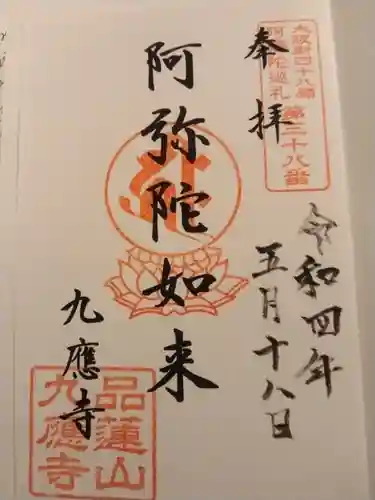 大阪新四十八願
阿弥陀巡礼 第三十八番
奉拝
令和四年
五月十八日
阿弥陀如来
九應寺
品蓮山
九應寺